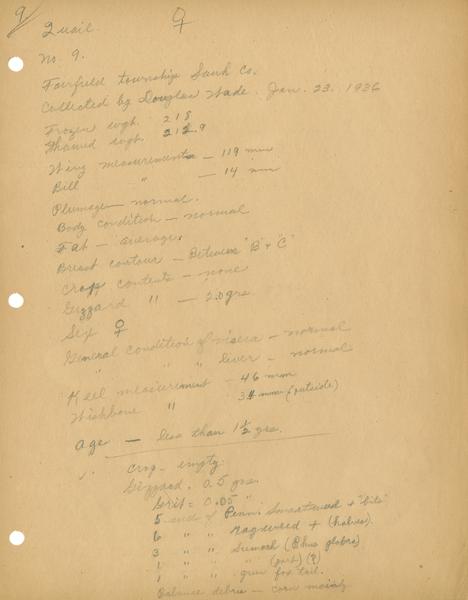 9
♀
Quail.
No. 9.
Fairfield township Sauk Co.
Collected by Douglas Wade. Jan. 23. 1936
Frozen wgh. 218
Thawed wgh. 212.9
Wing measurements — 119 mm
Bill " — 14 mm
Plumage — normal.
Body condition — normal
Fat — average.
Breast contour — Between "B" & "C"
Crop contents — none
Gizzard " — 2.0 grs.
Sex ♀
General condition of visera — normal
" " " liver — normal
Keel measurement — 46 mm
Wishbone " 34 mm (outside)
Age — less than 1½ yrs.
Crop — empty.
Gizzard. 0.5 grs.
Grit = 0.05 "
5 seed of Penn. Smartweed + "bits"
6 " " Ragweed + (halves).
3 " " Sumach (Rhus glabra)
1 " " " (part) (?)
1 " " green fox tail.
Balance debris — corn mainly